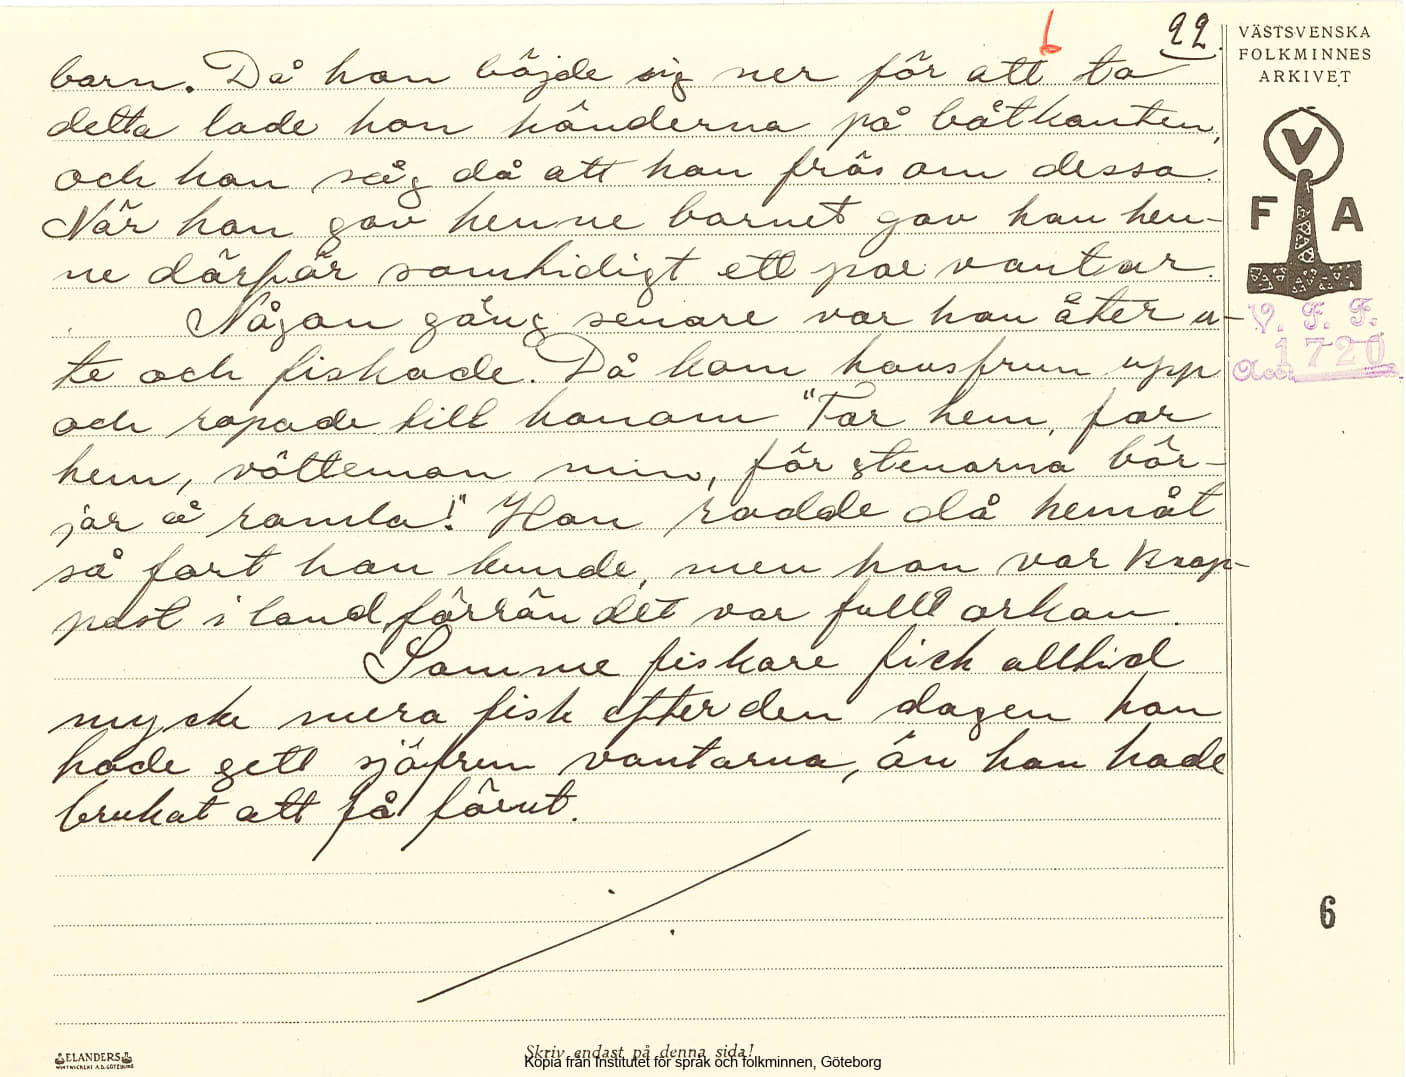 6
22.
VÄSTSVENSKA
FOLKMINNES
ARKIVET
V
F A
V. F. F.
Acc. 1720
barn. Då han böjde sig ner för att ta
detta lade hon händerna på båtkanten,
och han såg då att hon frös om dessa.
När han gav henne barnet gav han hen-
ne därför samtidigt ett par vantar.
Någon gång senare var han åter u-
te och fiskade. Då kom havsfrun upp
och ropade till honom "Far hem, far
hem, vötteman min, för stenarna bör-
jar å ramla!" Han rodde då hemåt
så fort han kunde, men han var knap-
past i land förrän det var full orkan.
Samme fiskare fick alltid
mycke mera fisk efter den dagen han
hade gett sjöfrun vantarna, än han hade
brukat att få förut.
6
ELANDERS
Skriv endast på denna sida!
Kopia från Institutet för språk och folkminnen, Göteborg